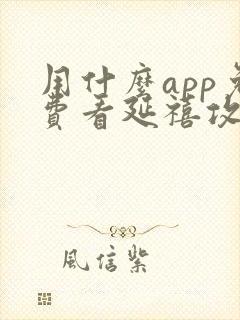 用什麽app免
費看延禧攻
風信紫